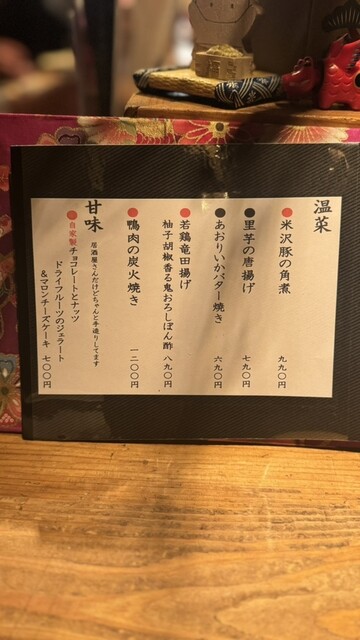 温菜
●米沢豚の角煮 九九〇円
●里芋の唐揚げ 七九〇円
●あおりいかバター焼き 六九〇円
●若鶏竜田揚げ
柚子胡椒香る鬼おろしぽん酢 八九〇円
●鴨肉の炭火焼き 一二〇〇円
甘味 居酒屋さんだけどちゃんと手造りしてます
●自家製 チョコレートとナッツ
ドライフルーツのジェラート
&マロンチーズケーキ 七〇〇円